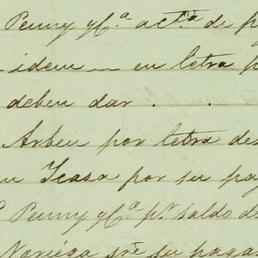 Penny y Cª actª de p
idem — en letra p
deben dar . .
Arbeu por letra des
Icasa por su pag
Penny y Cª pr saldo de
Noriéga sre su pagar